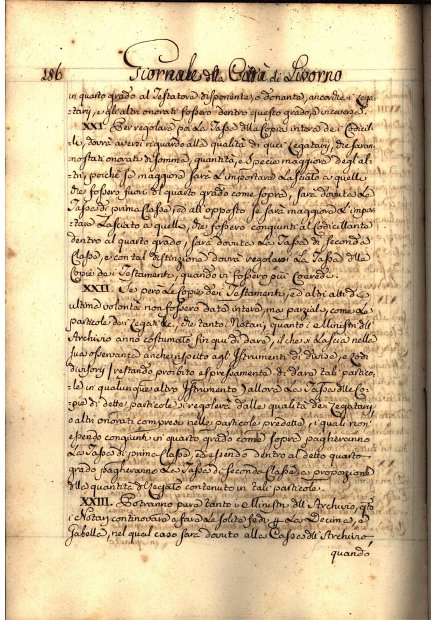 186 Giornale della Città di Livorno
in quarto grado al Testatore disponente, o donante, ancorche i Lega-
tarj, e gli altri onorati fossero dentro questo grado, e viceversa.
XXI. Per regolare poi la Tassa della Copia intera de i Codicil-
li, dovrà aversi riguardo alla qualità di quei Legatarj, che saran-
no stati onorati di somma, quantità, e specie maggiore degl' al-
tri, poiche se maggiore sarà l' importare lasciato a quelli
che fossero fuori di quarto grado come sopra, sarà dovuta la
Tassa di prima Classe, ed all' opposto se sarà maggiore l' impor-
tare lasciato a quelli, che fossero congiunti al Codicillante
dentro al quarto grado, sarà dovuta la Tassa di seconda
Classe, e con tal distinzione dovrà regolarsi la Tassa delle
Copie de i Testamenti, quando vi fossero più Coeredi.
XXII. Se però le Copie de i Testamenti, ed altri atti di
ultima volontà non fossero date intere, ma parziali, come le
particole de i Legati &c. che tanto i Notarj quanto i Ministri dell'
Archivio anno costumato fin qui di dare, il che si lascia nella
sua osservanza anche rispetto agl' Istrumenti di divise, e Lodi
divisorj (restando proibito espressamente di dare tali partico-
le in qualunque altro Istrumento) allora le Tasse delle Co-
pie di dette particole si regolerà dalle qualità dei Legatarj
o altri onorati compresi nelle particole predette, i quali non
essendo congiunti in quarto grado come sopra pagheranno
la Tassa di prima Classe, ed essendo dentro al detto quarto
grado pagheranno la Tassa di seconda Classe a proporzione
della quantità di Legato contenuto in tali particole.
XXIII. Potranno pure tanto i Ministri dell' Archivio, qto
i Notari continovare a fare le solite fedi p la Decima, e
Gabella, nel qual caso sarà dovuto alla Cassa dell' Archivio,
quando